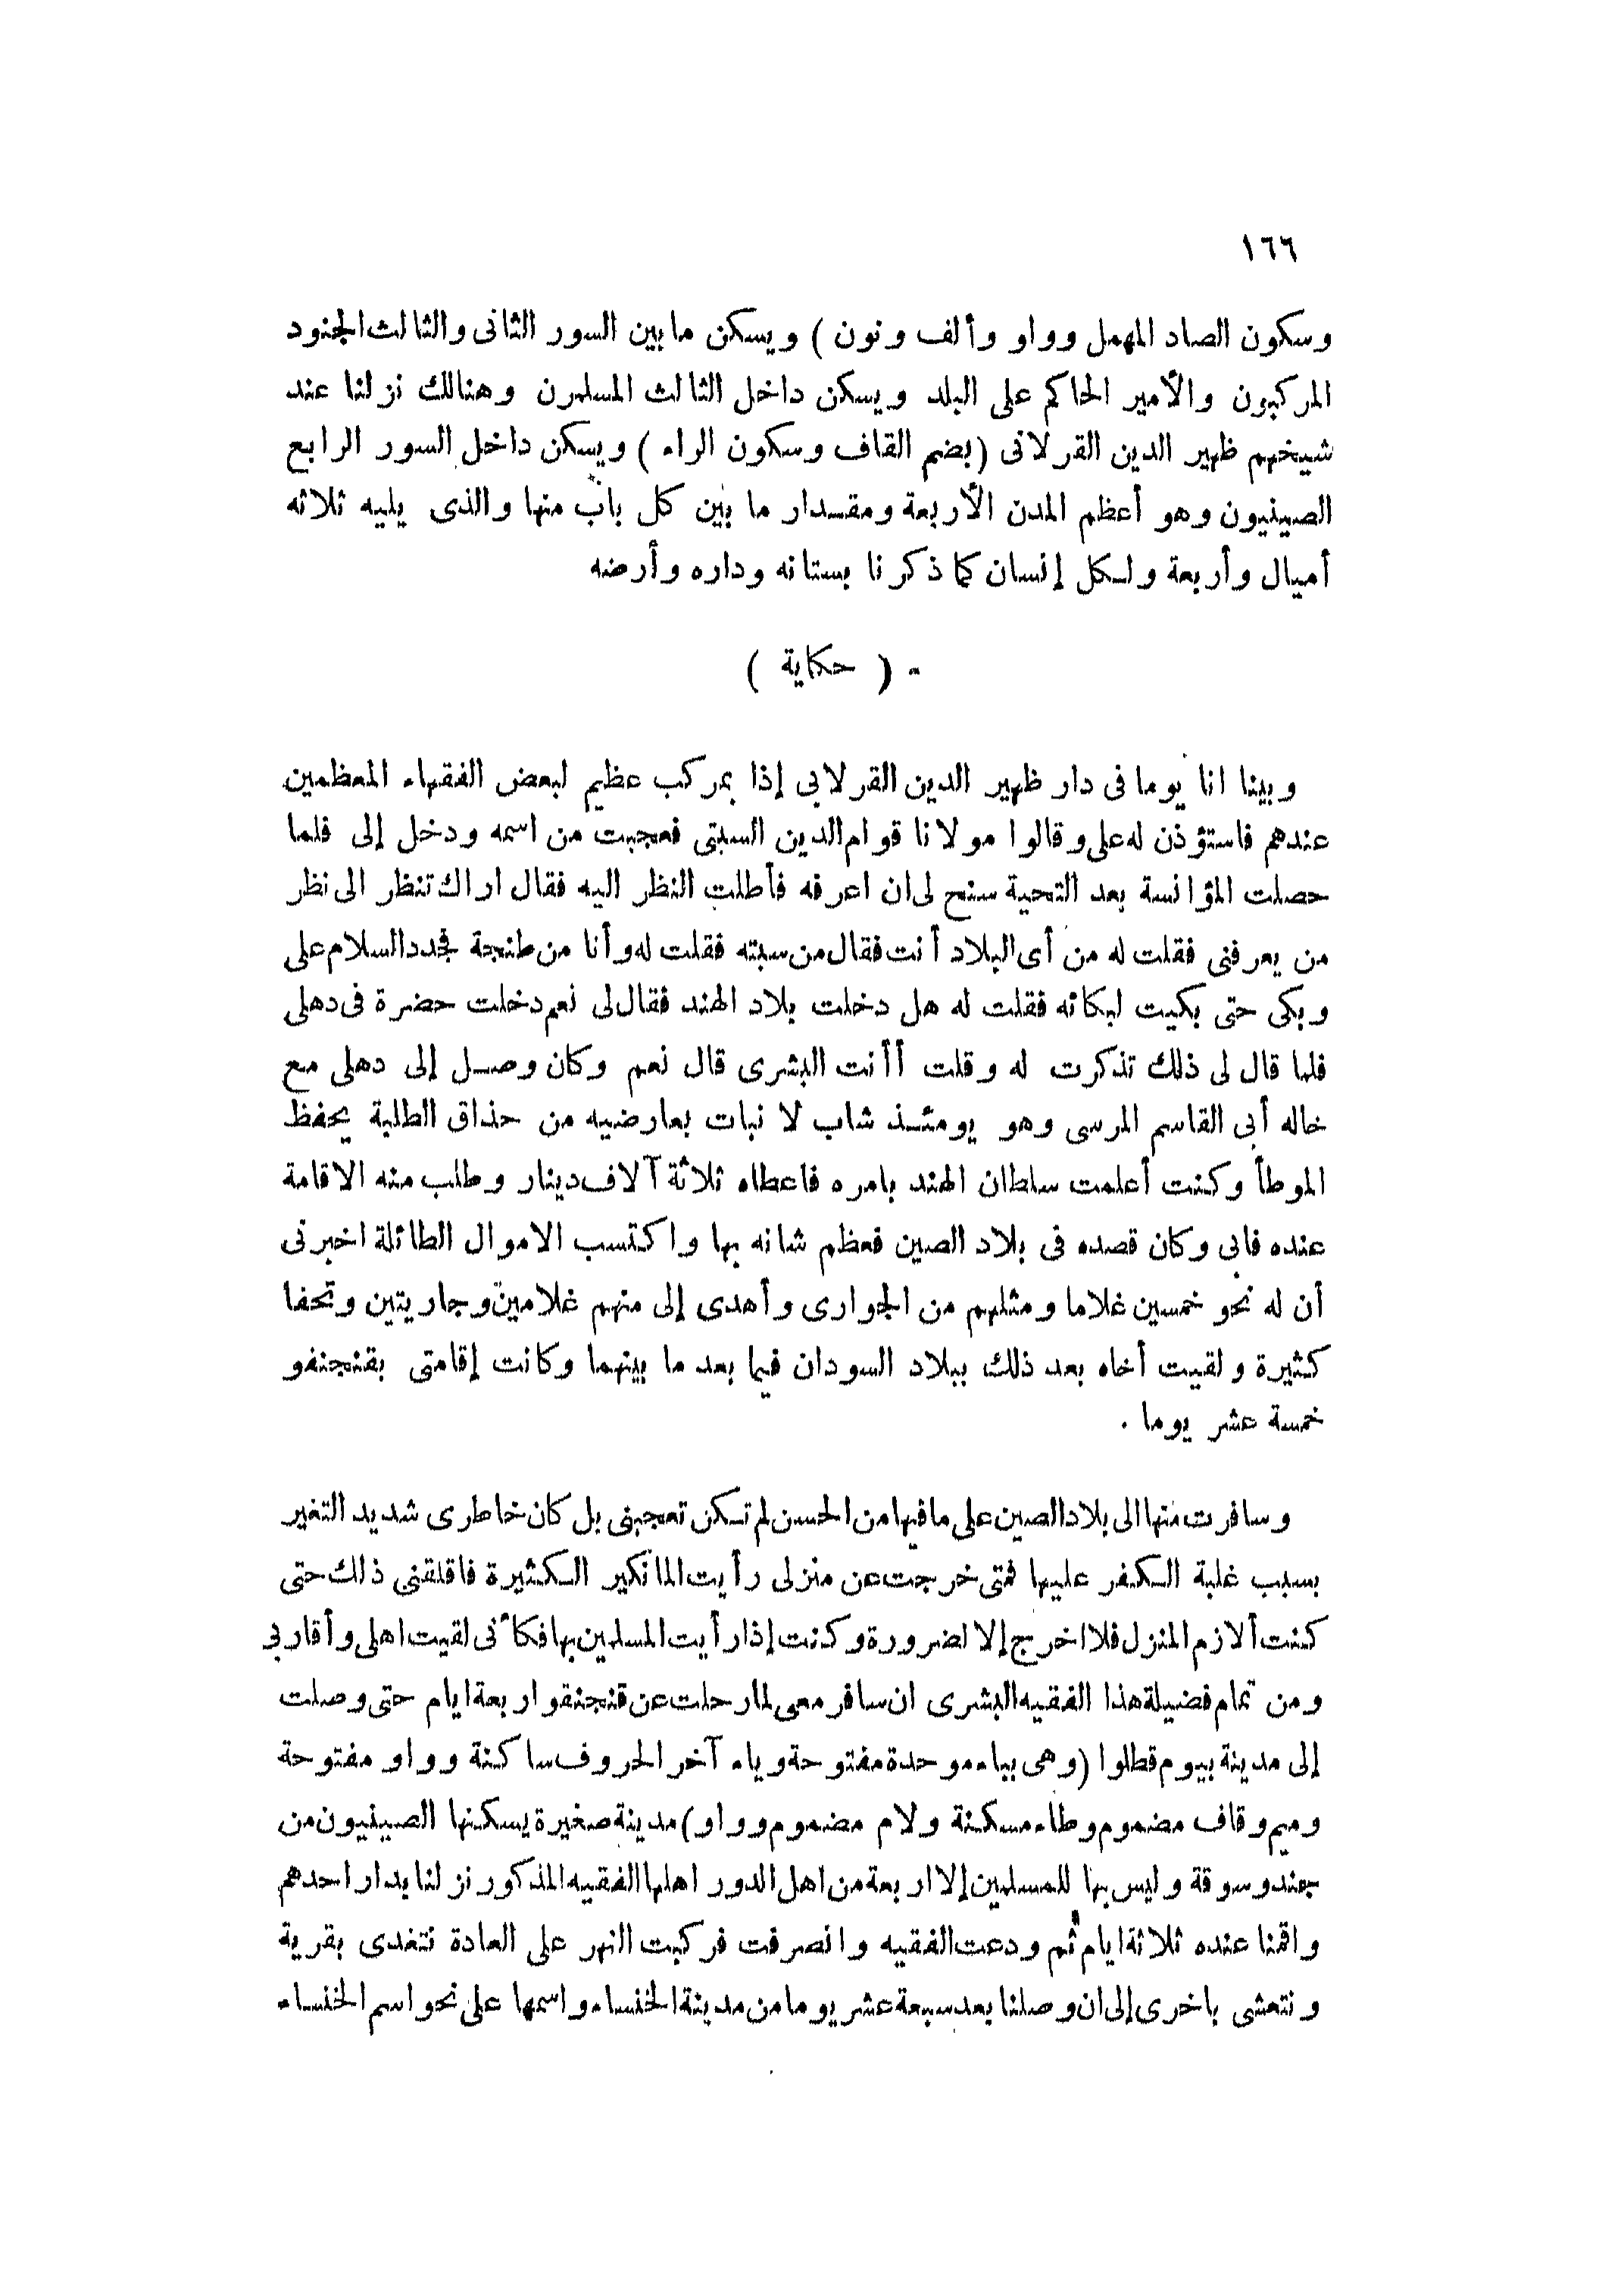 ١٦٦
وسكون الصاد المهمل وواو وألف ونون ) ويسكن ما بين السور الثانى والثالث الجنود
المركبون والأمير الحاكم على البلد ويسكن داخل الثالث المسلمون وهنالك نزلنا عند
شيخهم ظهير الدين القرلانى (بضم القاف وسكون الراء ) ويسكن داخل السور الرابع
الصينيون وهو أعظم المدن الأربعة ومقدار ما بين كل باب منها والذى يليه ثلاثه
أميال وأربعة ولكل إنسان كما ذكرنا بستانه وداره وأرضه
- ( حكاية )
وبينا انا يوما فى دار ظهير الدين القرلابى إذا بمركب عظيم لبعض الفقهاء المعظمين
عندهم فاستؤذن له على وقالوا مولانا قوام الدين السبتى فعجبت من اسمه ودخل إلى فلما
حصلت المؤانسة بعد التحية سنح لى ان اعرفه فأطلت النظر اليه فقال اراك تنظر الى نظر
من يعرفنى فقلت له من أى البلاد أنت فقال من سبته فقلت له وأنا من طنجة فجدد السلام على
وبكى حتى بكيت لبكائه فقلت له هل دخلت بلاد الهند فقال لى نعم دخلت حضرة فى دهلى
فلما قال لى ذلك تذكرت له وقلت أأنت البشرى قال نعم وكان وصل إلى دهلى مع
خاله أبى القاسم المرسى وهو يومئذ شاب لا نبات بعارضيه من حذاق الطلبة يحفظ
الموطأ وكنت أعلمت سلطان الهند بامره فاعطاه ثلاثة آلاف دينار وطلب منه الاقامة
عنده فابى وكان قصده فى بلاد الصين فعظم شانه بها واكتسب الاموال الطائلة اخبرنى
أن له نحو خمسين غلاما ومثلهم من الجوارى وأهدى إلى منهم غلامين وجاريتين وتحفا
كثيرة ولقيت أخاه بعد ذلك ببلاد السودان فيما بعد ما بينهما وكانت إقامتى بقنجنفو
خمسة عشر يوما .
وسافرت منها الى بلاد الصين على ما فيها من الحسن لم تكن تعجبنى بل كان خاطرى شديد التغير
بسبب غلبة الكفر عليها فمتى خرجت عن منزلى رأيت المانكير الكثيرة فاقلقنى ذلك حتى
كنت ألازم المنزل فلا اخرج إلا لضرورة وكنت إذا رأيت المسلمين بها فكأنى لقيت اهلى وأقاربى
ومن تمام فضيلة هذا الفقيه البشرى ان سافر معى لما رحلت عن قنجنقو اربعة ايام حتى وصلت
إلى مدينة بيوم قطلوا (وهى بباء موحدة مفتوحة وياء آخر الحروف ساكنة وواو مفتوحة
وميم وقاف مضموم وطاء مسكنة ولام مضموم وواو) مدينة صغيرة يسكنها الصينيون من
جند وسوقة وليس بها للمسلمين إلا اربعة من اهل الدور اهلها الفقيه المذكور نزلنا بدار احدهم
واقمنا عنده ثلاثة ايام ثم ودعت الفقيه وانصرفت فركبت النهر على العادة نتغدى بقرية
ونتعشى باخرى إلى ان وصلنا بعد سبعة عشر يوما من مدينة الخنساء واسمها على نحو اسم الخنساء